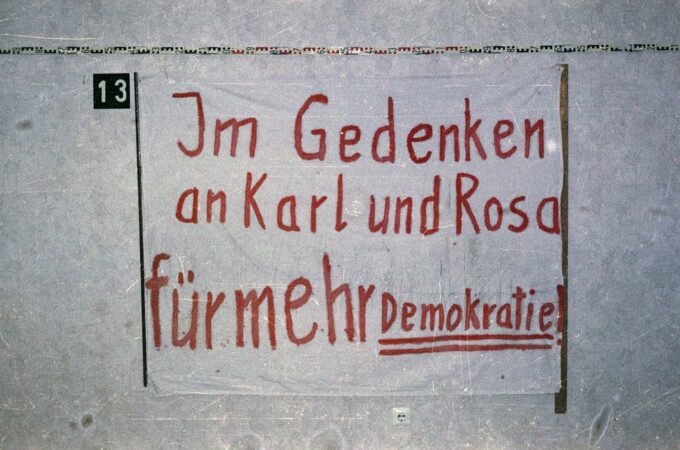 13
Im Gedenken
an Karl und Rosa
für mehr Demokratie!